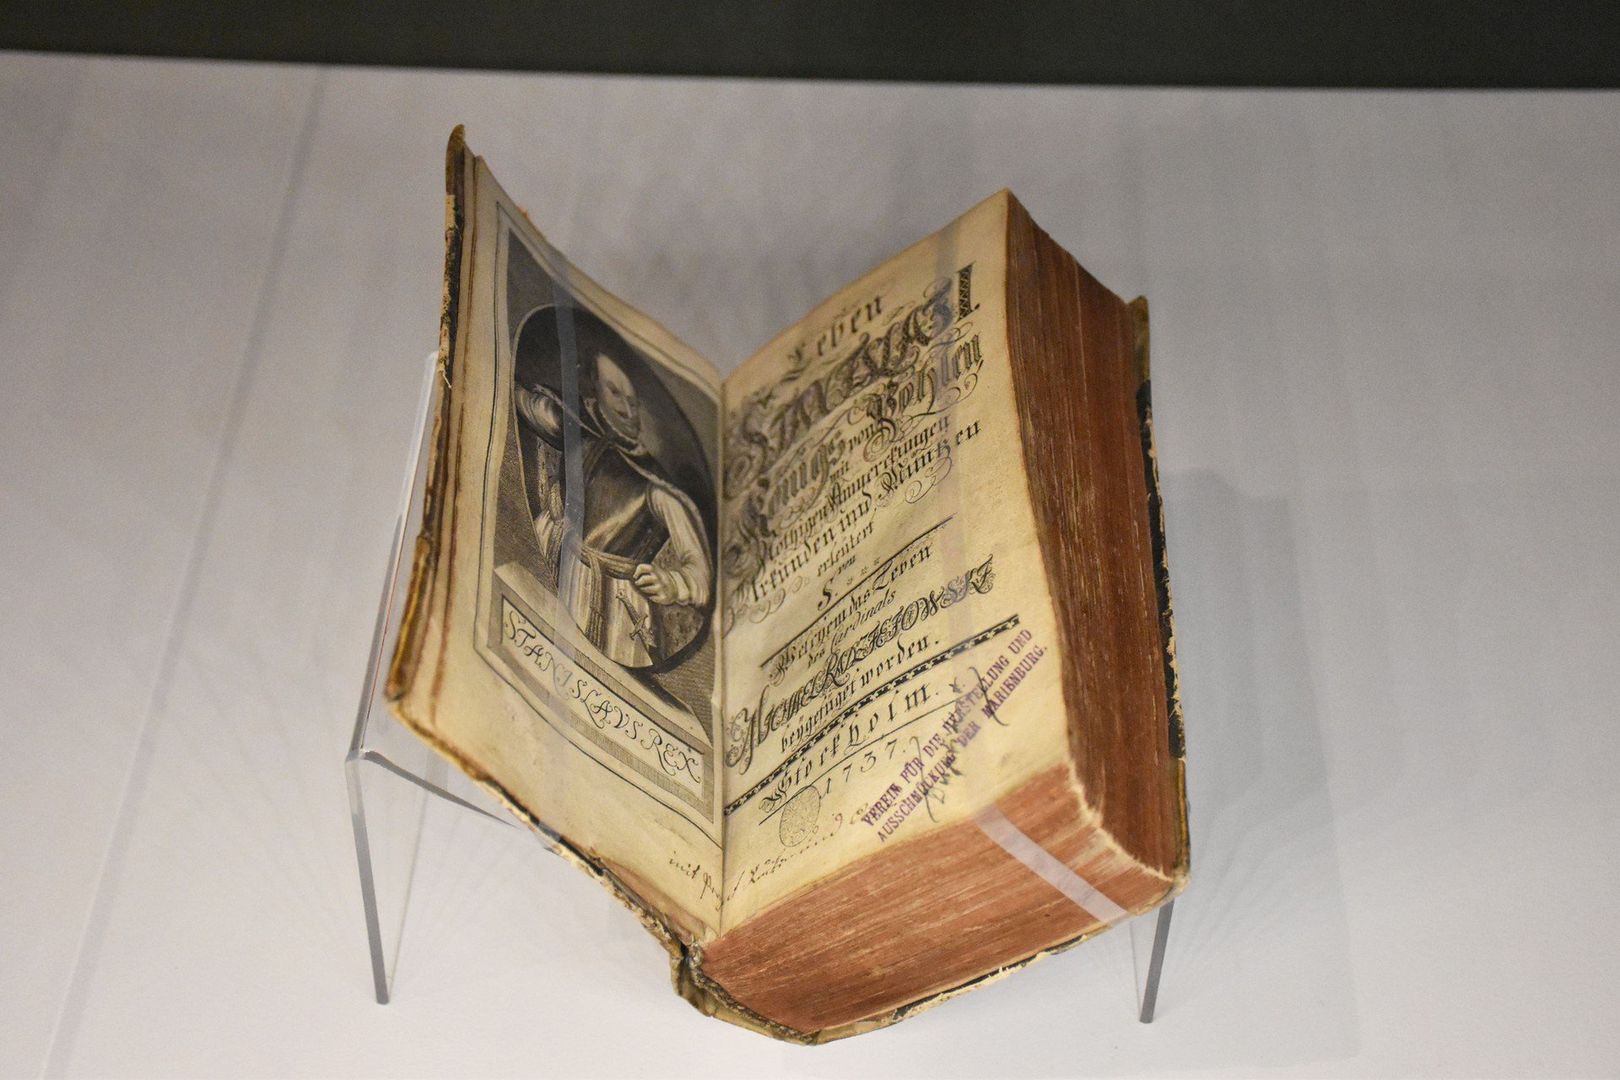 STANISLAVS REX
Leben
STANISLAI I.
Königs von Pohlen
mit
Nöthigen Anmerckungen
Urkunden und Müntzen
erleütert
von
S. ***
Welchem das Leben
des Cardinals
MICHAEL RADZIEIOWSKI
beygefüget worden.
Stockholm.
1737.
VEREIN FÜR DIE HERSTELLUNG UND
AUSSCHMÜCKUNG DER MARIENBURG.
mit